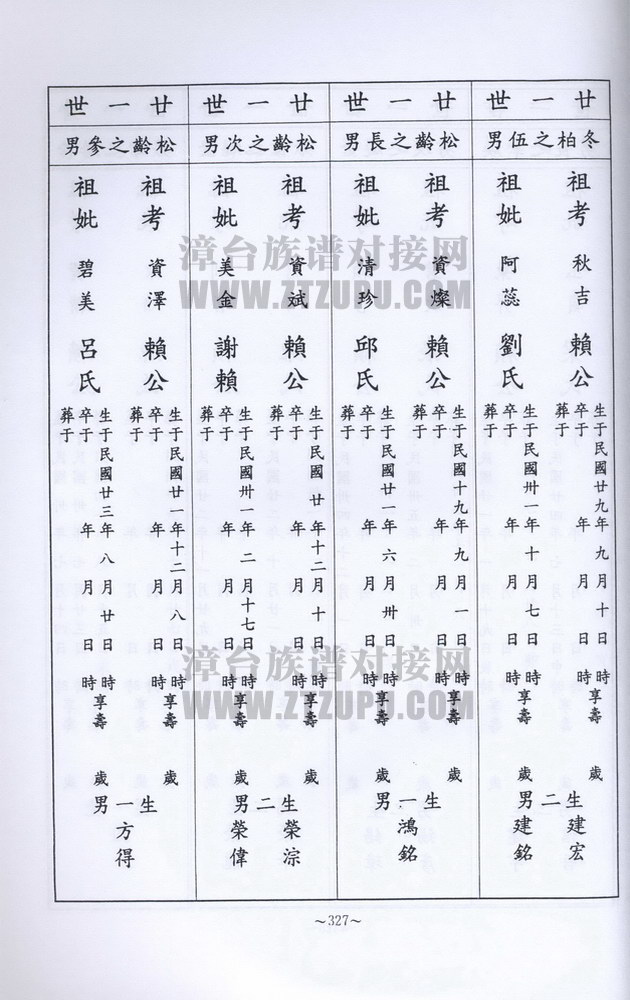 廿一世
冬柏之伍男
祖考 秋吉 賴公
生于民國廿九年九月十日時享壽歲
卒于 年 月 日 時
葬于
祖妣 阿蕊 劉氏
生于民國卅一年十月七日時享壽
卒于 年 月 日 時
葬于
生二男
建宏
建銘
廿一世
松齡之長男
祖考 資燦 賴公
生于民國十九年九月一日時享壽歲
卒于 年 月 日 時
葬于
祖妣 清珍 邱氏
生于民國廿一年六月卅日時享壽歲
卒于 年 月 日 時
葬于
生一男
鴻銘
廿一世
松齡之次男
祖考 資斌 賴公
生于民國廿年十二月十日時享壽歲
卒于 年 月 日 時
葬于
祖妣 美金 謝賴
生于民國卅一年二月十七日時享壽歲
卒于 年 月 日 時
葬于
生二男
榮淙
榮偉
廿一世
松齡之參男
祖考 資澤 賴公
生于民國廿一年十二月八日時享壽歲
卒于 年 月 日 時
葬于
祖妣 碧美 呂氏
生于民國廿三年八月廿日時享壽歲
卒于 年 月 日 時
葬于
生一男
方得
～327～
漳台族谱对接网
WWW.ZTZUPU.COM
漳台族谱对接网
WWW.ZTZUPU.COM